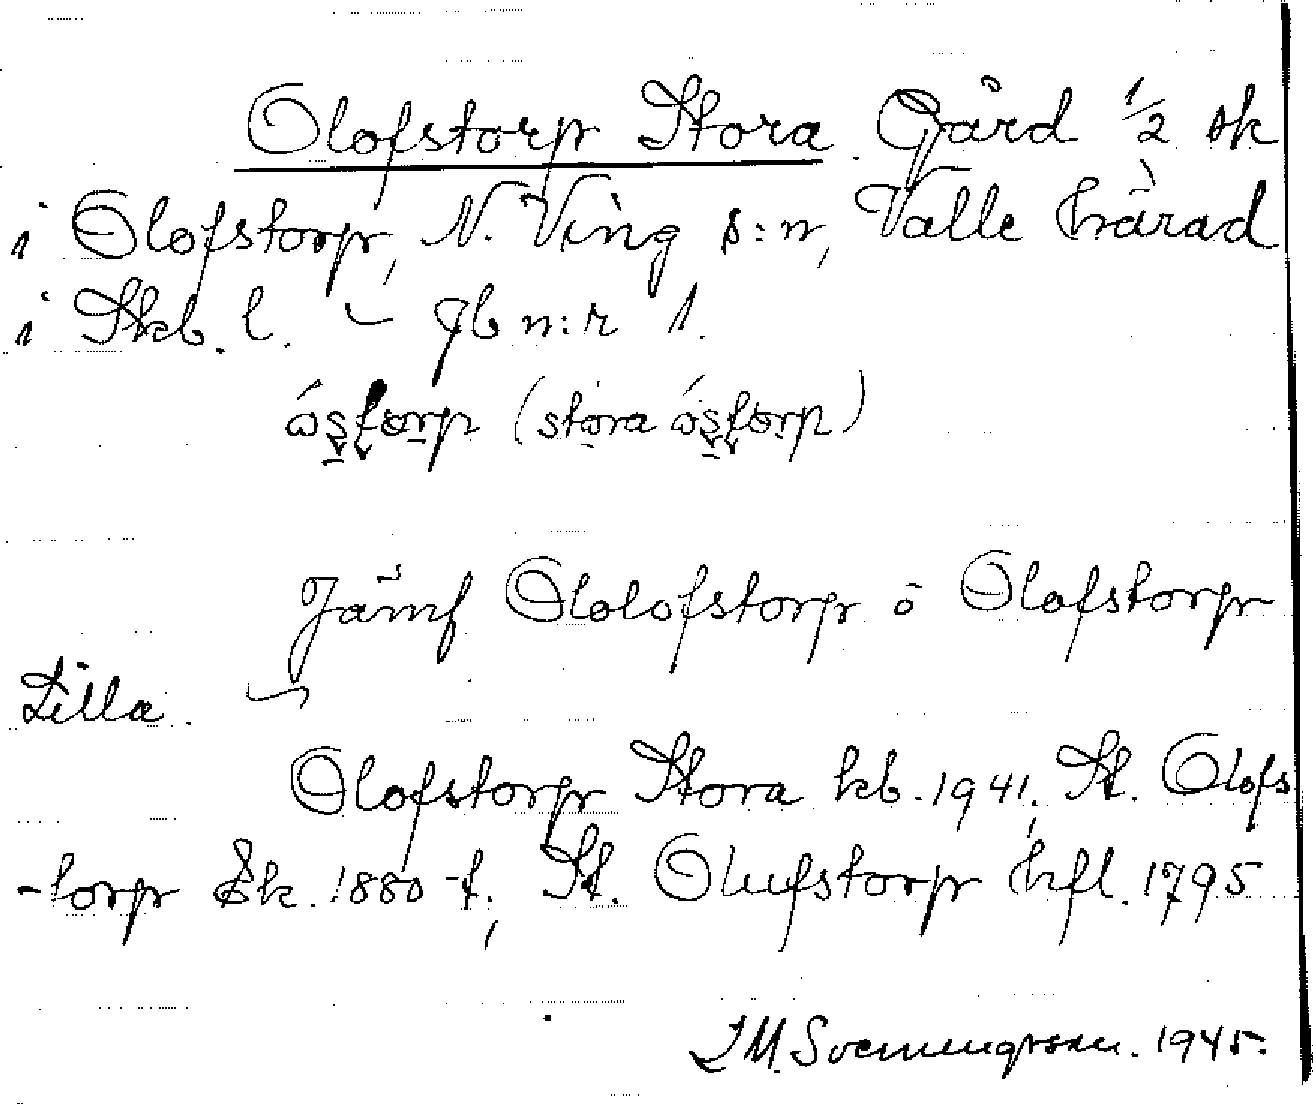 Olofstorp Stora. Gård 1/2 sk
i Olofstorp, N. Ving s:n, Valle härad
i Skb. l. – Jb n:r 1.
ósto̱rp (stora ósto̱rp)
Jämf Ololofstorp o Olofstorp
Lilla.
Olofstorp Stora kb. 1941; St. Olofs
-torp Ek. 1880-t.; St. Olufstorp hfl. 1795
I M. Svenningsson. 1945.